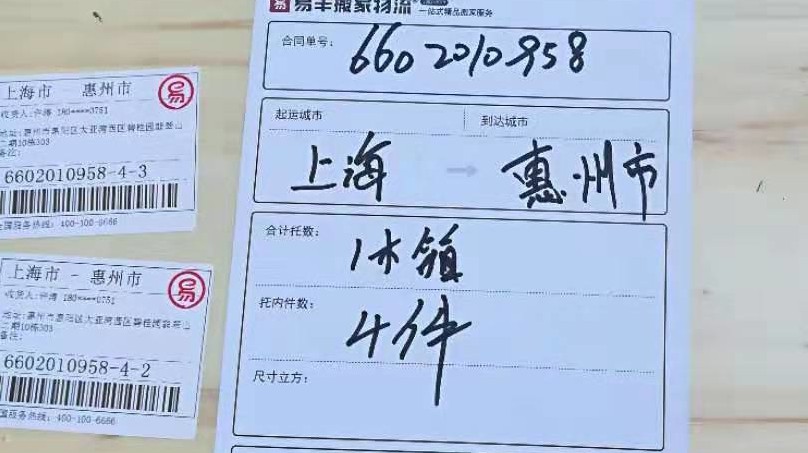 上海市 惠州市
易
收货人:许涛 180****0751
地址:惠州市惠阳区大亚湾西区碧桂园翡翠山
二期10栋303
备注:
6602010958-4-3
全国服务热线: 400-100-6666
上海市 - 惠州市
易
收货人:许涛 180****0751
地址:惠州市惠阳区大亚湾西区碧桂园翡翠山
二期10栋303
备注:
6602010958-4-2
全国服务热线: 400-100-6666
易丰搬家物流
一站式精品搬家服务
合同单号:
6602010958
起运城市
到达城市
上海
惠州市
合计托数:
1木箱
托内件数:
4件
尺寸立方: